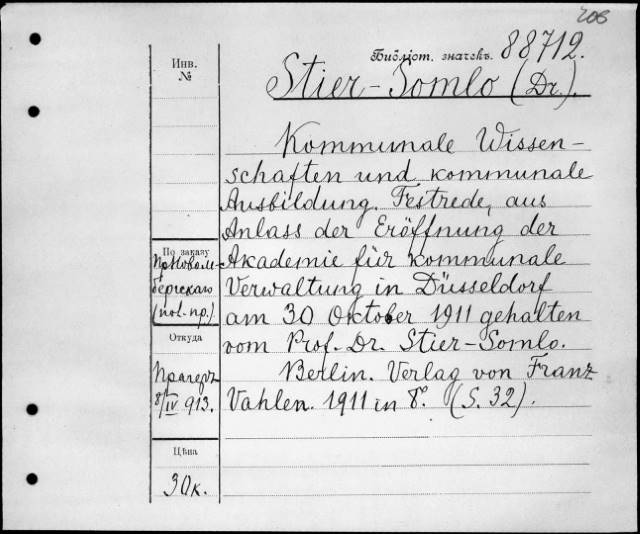 208
Библіот. значекъ. 88712.
Stier-Somlo (Dr.).
Инв.
№
Kommunale Wissen-
schaften und kommunale
Ausbildung. Festrede, aus
Anlass der Eröffnung der
Akademie für kommunale
Verwaltung in Düsseldorf
am 30 Oktober 1911 gehalten
vom Prof. Dr. Stier-Somlo.
Berlin. Verlag von Franz
Vahlen. 1911 in 8°. (S. 32).
По заказу
пр. Новом-
бергскаго
(пол.-пр.)
Откуда
Прагеръ
8/IV 913.
Цѣна
30к.